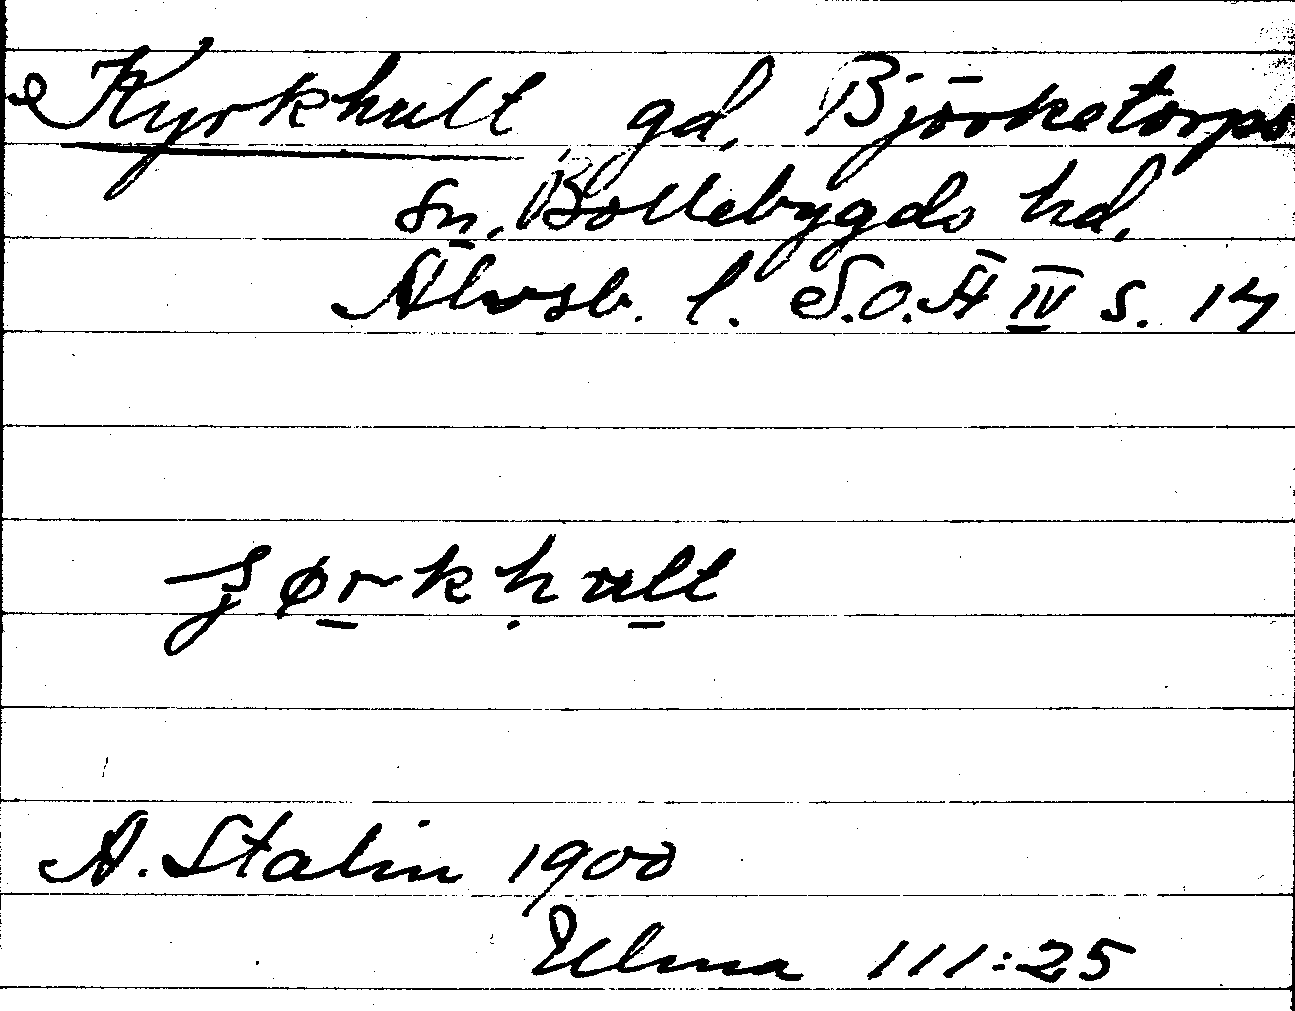 Kyrkhult gd, Björketorps
sn, Bollebygds hd,
Älvsb. l. S.O.Ä IV s. 17
A. Stalin 1900
Ulma 111:25